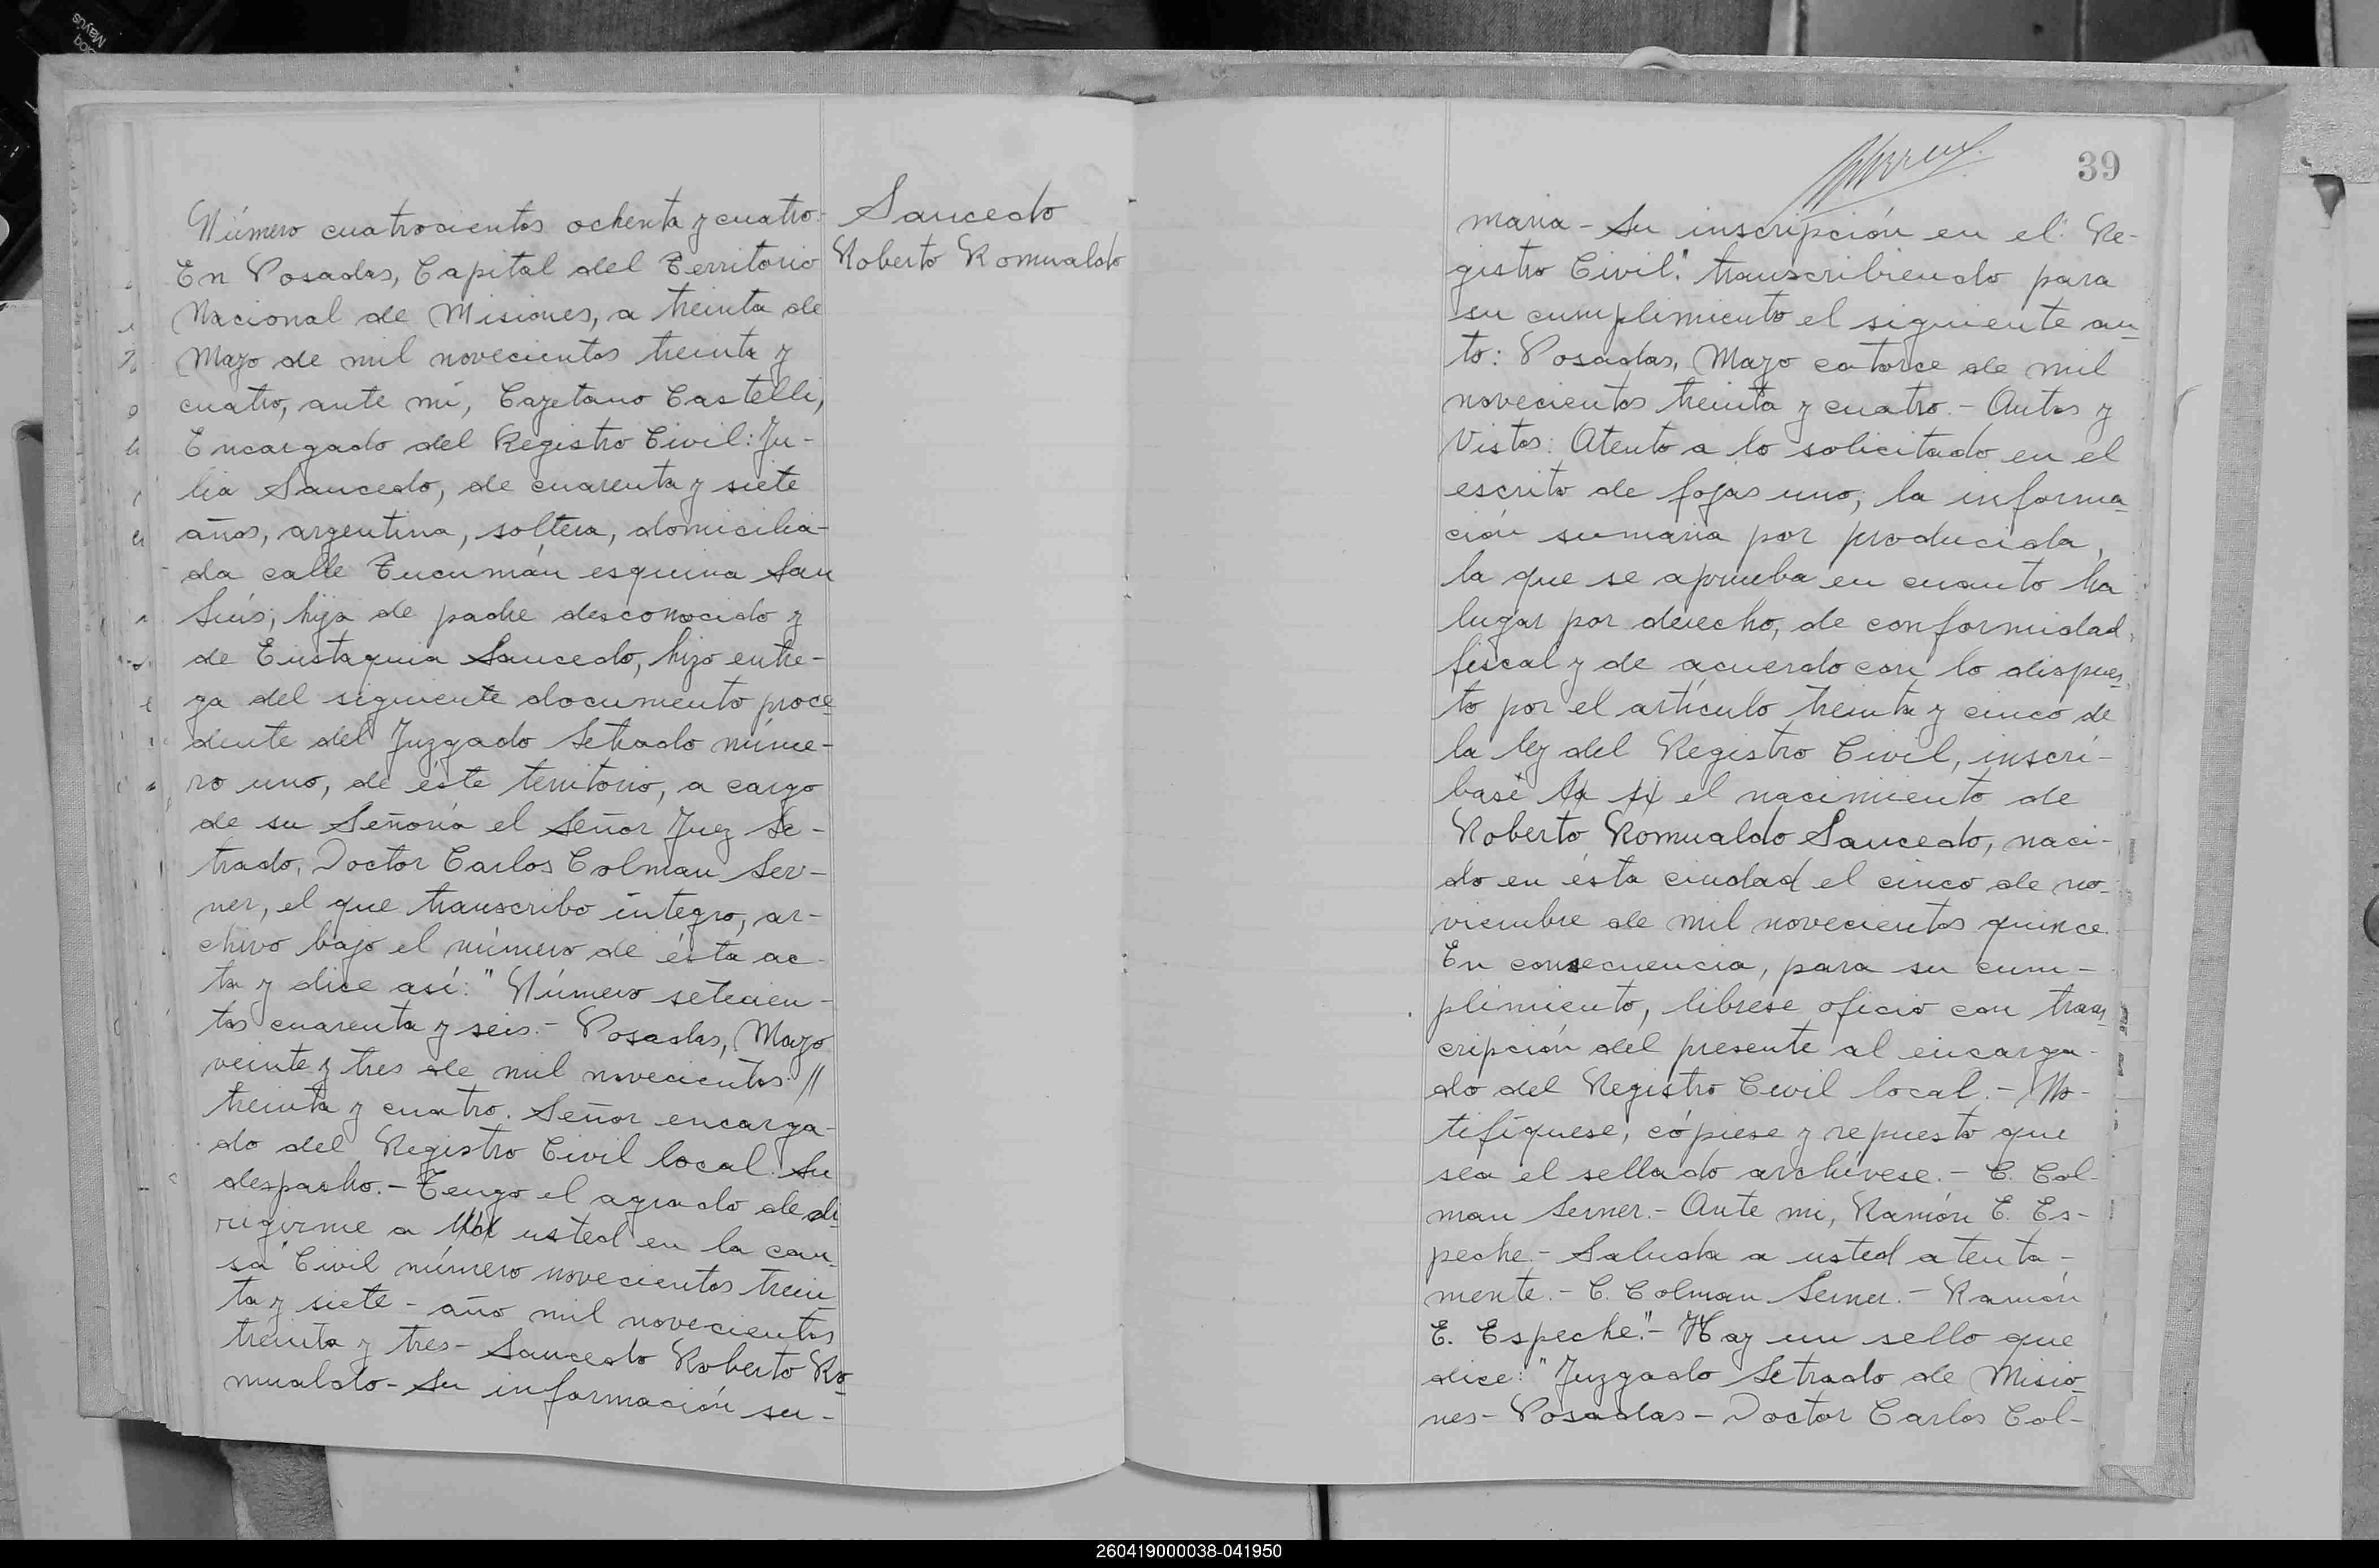 Número cuatrocientos ochenta y cuatro.-
En Posadas, Capital del Territorio
Nacional de Misiones, a treinta de
Mayo de mil novecientos treinta y
cuatro, ante mí, Cayetano Castelli,
Encargado del Registro Civil: Ju-
lia Saucedo, de cuarenta y siete
años, argentina, soltera, domicilia-
da calle Tucumán esquina San
Luis; hija de padre desconocido y
de Eustaquia Saucedo, hizo entre-
ga del siguiente documento proce-
dente del Juzgado Letrado núme-
ro uno, de éste territorio, a cargo
de su Señoría el Señor Juez Le-
trado, Doctor Carlos Colman Ler-
ner, el que transcribo íntegro, ar-
chivo bajo el número de ésta ac-
ta y dice así: "Número setecien-
tos cuarenta y seis.- Posadas, Mayo
veinte y tres de mil novecientos //
treinta y cuatro. Señor encarga-
do del Registro Civil local. Su
despacho.- Tengo el agrado de di-
rigirme a usted en la cau-
sa Civil número novecientos trein-
ta y siete - año mil novecientos
treinta y tres - Saucedo Roberto Ro-
mualdo - Su información su-
Saucedo
Roberto Romualdo
39
maria - Su inscripción en el Re-
gistro Civil." transcribiendo para
su cumplimiento el siguiente au-
to: Posadas, Mayo catorce de mil
novecientos treinta y cuatro.- Autos y
Vistos: Atento a lo solicitado en el
escrito de fojas uno, la informa-
ción sumaria por producida,
la que se aprueba en cuanto ha
lugar por derecho, de conformidad
fiscal y de acuerdo con lo dispues-
to por el artículo treinta y cinco de
la ley del Registro Civil, inscrí-
base el nacimiento de
Roberto Romualdo Saucedo, naci-
do en ésta ciudad el cinco de no-
viembre de mil novecientos quince.
En consecuencia, para su cum-
plimiento, líbrese oficio con trans-
cripción del presente al encarga-
do del Registro Civil local.- No-
tifíquese, cópiese y repuesto que
sea el sellado archívese.- C. Col-
man Lerner.- Ante mi, Ramón E. Es-
peche.- Saluda a usted atenta-
mente.- C. Colman Lerner.- Ramón
E. Espeche."- Hay un sello que
dice: "Juzgado Letrado de Misio-
nes - Posadas - Doctor Carlos Col-
260419000038-041950